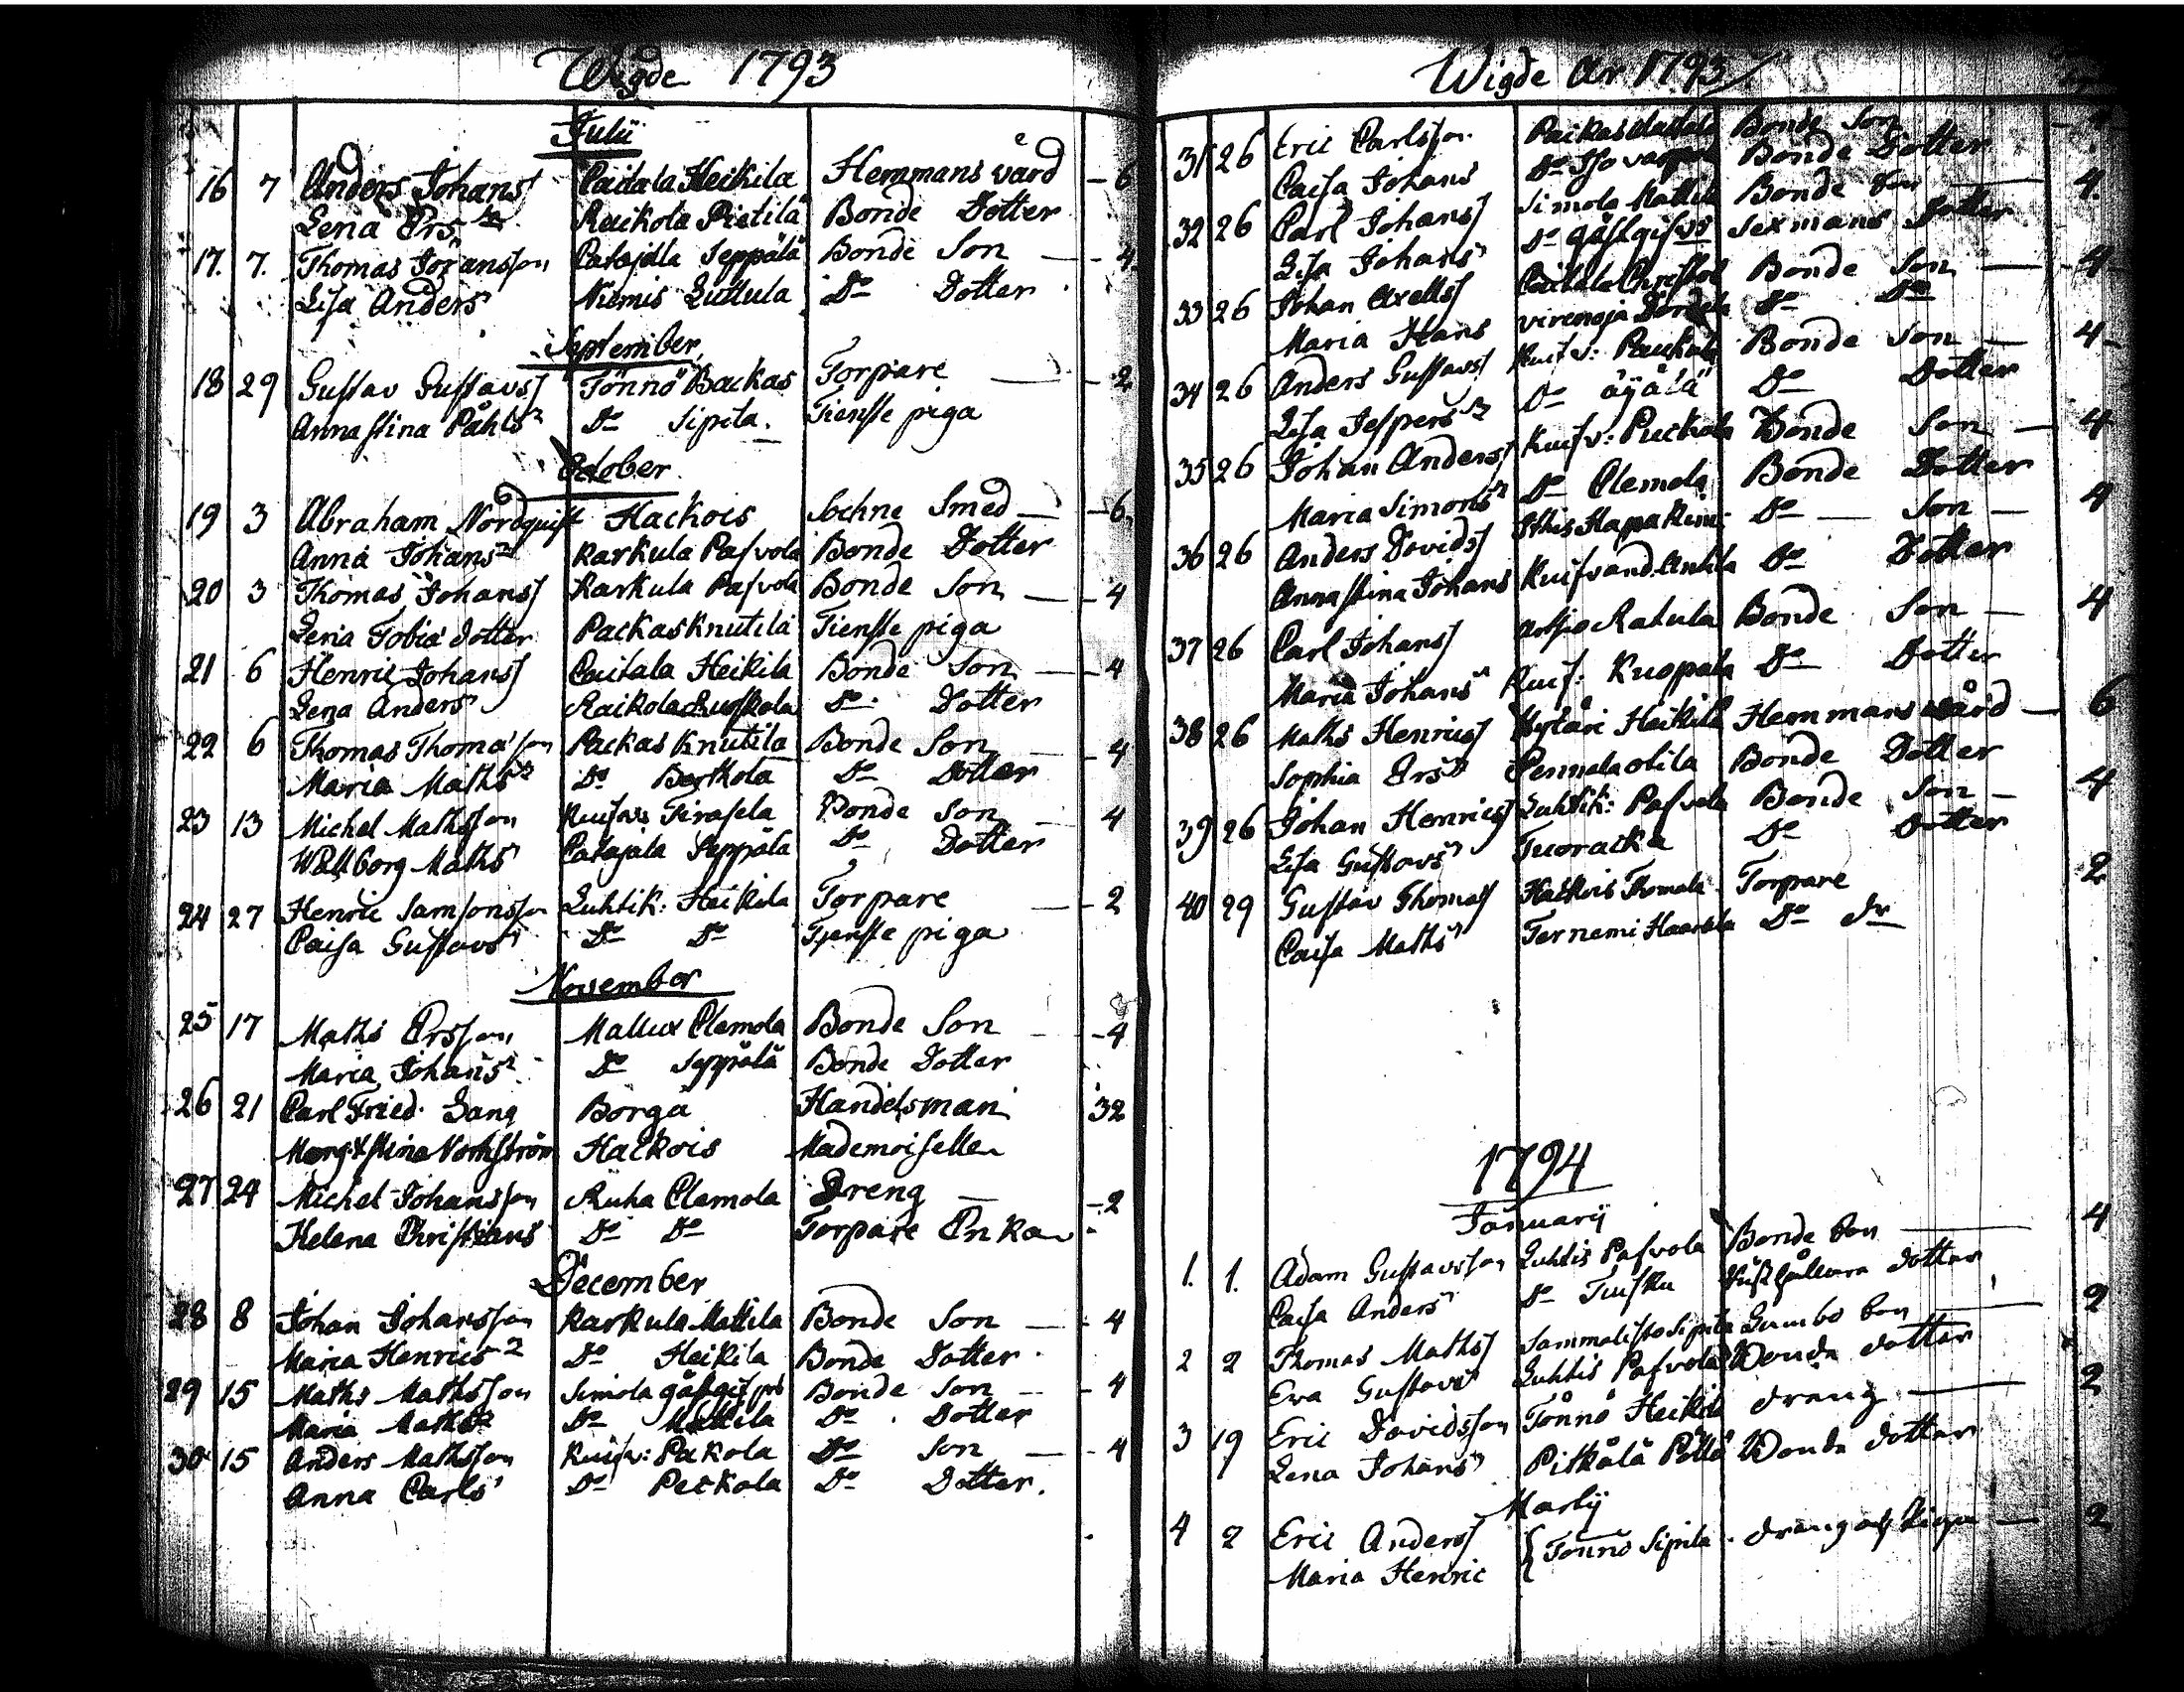 Wigde 1793
Julii
16 7 Anders Johanss Caitala Heikila Hemmans vård – 6
Lena Ers Raikola Pietilä Bonde Dotter
17. 7. Thomas Göransson Catajala Seppälä Bonde Son – 4
Lisa Anders Niemis Luttula Do Dotter
September
18 29 Gustav Gustavss Tönnö Backas Torpare – 2
Annastina Påhls Do Sipila. Tienste piga
October
19 3 Abraham Nordquist Hackois Sochne Smed – 6
Anna Johans Karkula Pasvola Bonde Dotter
20 3 Thomas Johanss Karkula Pasvola Bonde Son – 4
Lena Tobias dotter Packas Knutila Tienste piga
21 6 Henric Johanss Caitala Heikila Bonde Son – 4
Lena Anders Raikola Do Dotter
22 6 Thomas Thomasson Packas Knutila Bonde Son – 4
Maria Maths Do Berthola Do Dotter
23 13 Michel Mathsson Bonde Son – 4
Wallborg Maths Catajala Seppälä Do Dotter
24 27 Henric Samsonsson Luhtik: Heikila Torpare – 2
Caisa Gustavs Do Do Tjenste piga
November
25 17 Maths Ersson Mallux Clemola Bonde Son – 4
Maria Johans Do Seppälä Bonde Dotter
26 21 Carl Fried. Lang Borgå Handelsman 32
Hackois Mademoiselle
27 24 Michel Johansson Ruha Clemola Dreng – 2
Helena Christians Do Do Torpare Enka
December
28 8 Johan Johansson Karkula Mattila Bonde Son – 4
Maria Henrics Do Heikila Bonde Dotter
29 15 Maths Mathsson Simola Bonde Son – 4
Maria Maths Do Mattila Do Dotter
30 15 Anders Mathsson Kuifv: Pakola Do Son – 4
Anna Carls Do Peckola Do Dotter.
Wigde År 1793
31 26 Eric Carlsson Bonde Son
Caisa Johans Do Bonde Dotter
32 26 Carl Johanss Simola Mattila Bonde Son 4
Lisa Johans Do Sexmans Dotter
33 26 Johan Axelss Bonde Son – 4
Maria Hans Do Do
34 26 Anders Gustavss Bonde Son – 4
Lisa Jespers Do Äyälä Do Dotter
35 26 Johan Anderss Kuifv: Bonde Son – 4
Maria Simons Do Clemola Bonde Dotter
36 26 Anders Davidss Do – Son – 4
Annastina Johans Do Dotter
37 26 Carl Johanss Bonde Son – 4
Maria Johans Kuif: Kuopala Do Dotter
38 26 Maths Henricss Heikilä Hemmans vård – 6
Sophia Ers Pennala olila Bonde Dotter
39 26 Johan Henricss Luhtik: Pasvola Bonde Son – 4
Lisa Gustavs Do Dotter
40 29 Gustav Thomass Hackois Thomola Torpare 2
Caisa Maths Do dr
1794
Januarij
1. 1. Adam Gustavsson Luhtis Pasvola Bonde Son 4
Caisa Anders Do Dotter
2 2 Thomas Mathss Sammalisto Sipila Son 2
Eva Gustavs Luhtis Pasvola Bonde dotter
3 19 Eric Davidsson Tönnö Heikila dreng 2
Lena Johans Pitkälä Bonde dotter
Martij
4 2 Eric Anderss Tönnö Sipila. dreng och Piga – 2
Maria Henric